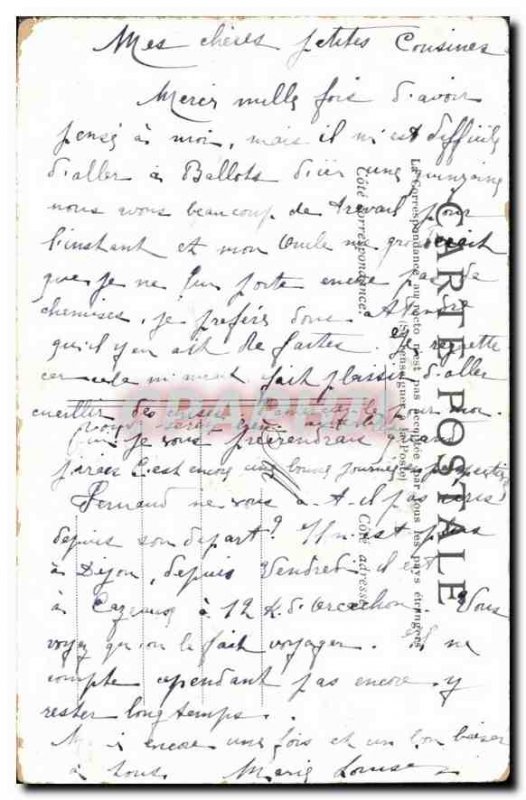 Mes chères petites Cousines
Merci mille fois d'avoir
pensé à moi, mais il m'est difficile
d'aller à Ballots d'ici une quinzaine
nous avons beaucoup de travail pour
l'instant et mon Oncle me
que je ne lui porte encore pas de
chemises, je préfère donc attendre
qu'il y en ait de faites. Je regrette
car cela m' fait plaisir d'aller
cueillir des cerises pour moi.
je vous
C'est encore une bonne journée
Fernand ne vous a-t-il pas écris
depuis son départ? Il n'est plus
à Dijon, depuis Vendredi il est
à Cazeaux à 12 K. d'Arcachon. Vous
voyez qu'on le fait voyager. Il ne
compte cependant pas encore y
rester longtemps.
encore une fois et un bon baiser
à tous. Marie Louise
CARTE POSTALE
La Correspondance au recto n'est pas acceptée par tous les pays étrangers
(Se renseigner à la Poste)
Côté correspondance.
Côté adresse